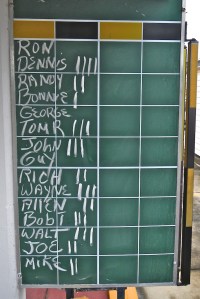 RON
DENNIS ||||
RANDY ||
BONNIE |
GEORGE
TOM R |||
JOHN |||
GUY
RICH ||
WAYNE |||
ALLEN ||
BOB T |||
WALT |||
JOE ||
MIKE ||